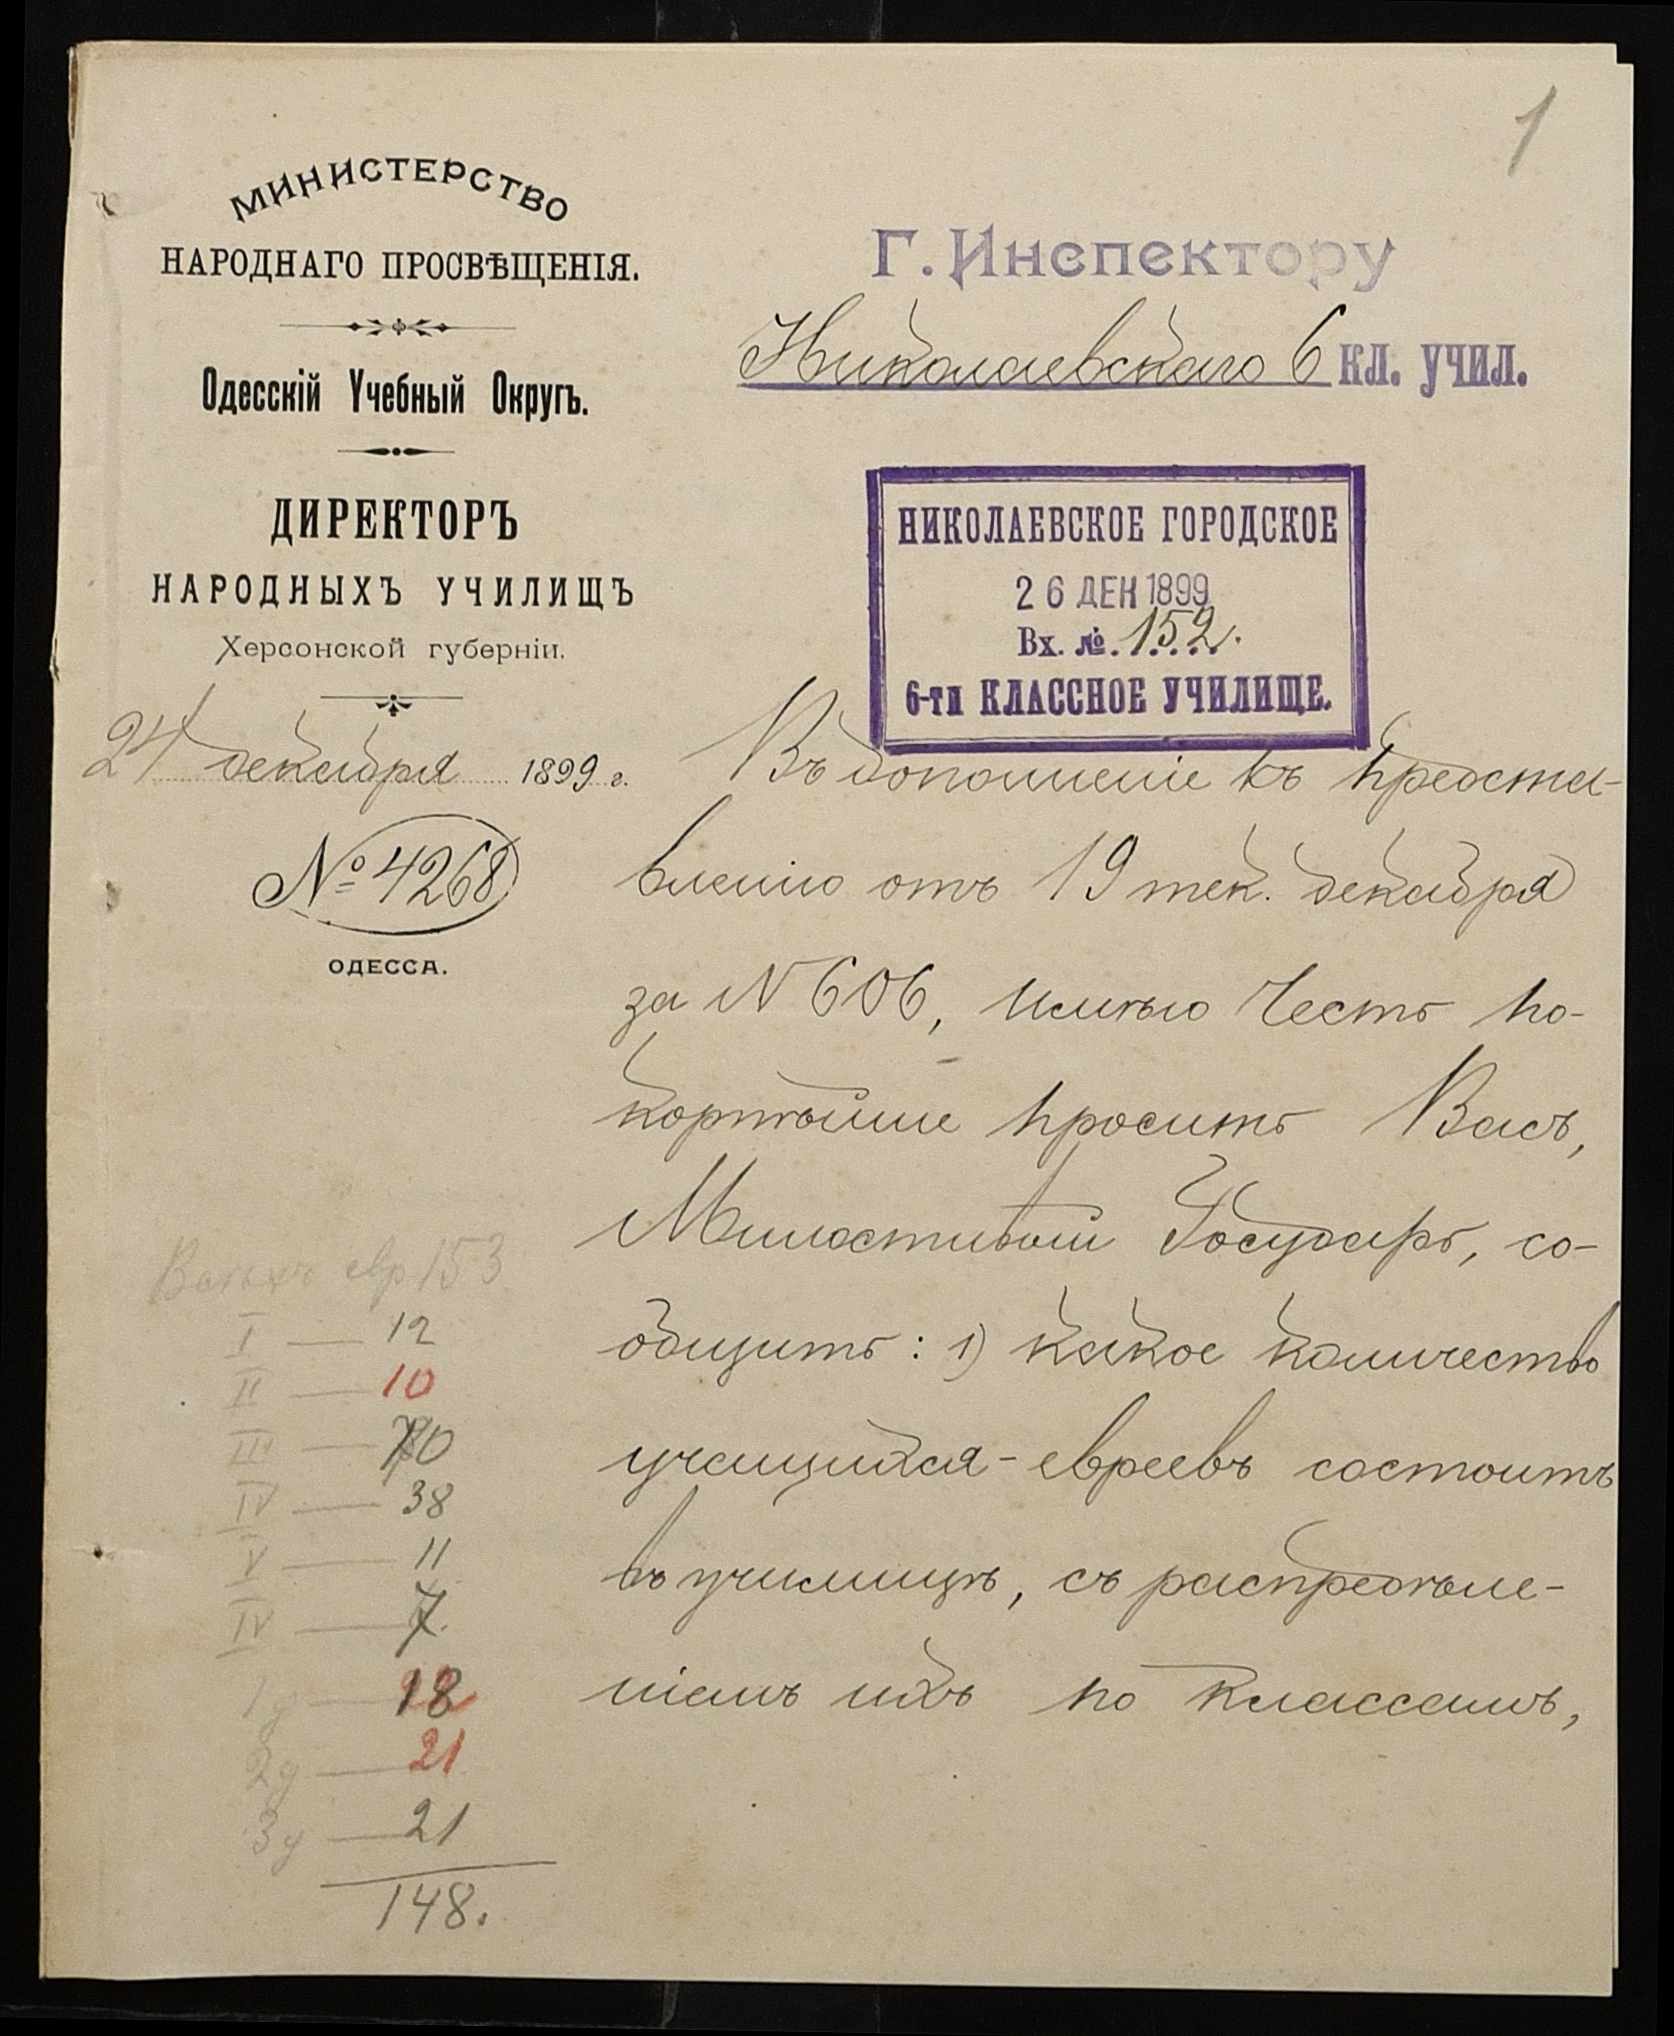 1
МИНИСТЕРСТВО
НАРОДНАГО ПРОСВѢЩЕНІЯ.
Одесскій Учебный Округъ.
ДИРЕКТОРЪ
НАРОДНЫХЪ УЧИЛИЩЪ
Херсонской губерніи.
24 декабря 1899 г.
№ 4268
ОДЕССА.
Г. Инспектору
Николаевскаго 6 кл. учил.
НИКОЛАЕВСКОЕ ГОРОДСКОЕ
26 ДЕК 1899
Вх. №. 152.
6-ти КЛАССНОЕ УЧИЛИЩЕ.
Въ дополненіе къ предста-
вленію отъ 19 тек. декабря
за N 606, имѣю честь по-
корнѣйше просить Васъ,
Милостивый Государь, со-
общить: 1) какое количество
учащихся-евреевъ состоитъ
въ училищѣ, съ распредѣле-
ніемъ ихъ по классамъ,
евр 153
I — 12
II — 10
III — 10
IV — 38
V — 11
IV — 7.
1 у — 18
2 у — 21
3 у — 21
148.